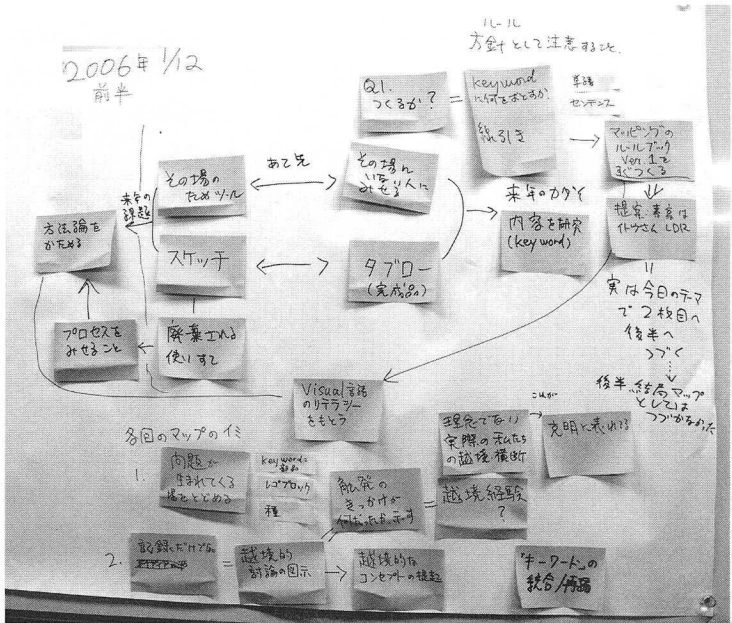 2006年 1/12
前半
ルール
方針として注意すること.
Q1.
つくるか?
=
keyword
に何をおとすか?
線引き
単語
センテンス
マッピングの
ルールブック
Ver.1を
すぐつくる
その場の
ためツール
あて先
その場に
いない
みせる人に
来年の
課題
方法論を
かためる
来年のカダイ
内容を研究
(keyword)
提案・書記は
イトウさん LDR
スケッチ
タブロー
(完成品)
実は今日のテーマ
で2枚目へ
後半へ
つづく
プロセスを
みせること
廃棄される
使いすて
後半、結局マップ
としては
つづかなかった
Visual言語
のリテラシー
をもとう
各回のマップのイミ
1.
問題が
生まれてくる
場をとどめる
keyword=
レゴブロック
種
触発の
きっかけが
何だったか、示す
=
理念でない
実際の私たち
の越境横断
越境経験
?
これが
克明に表れてる
2.
記録だけでない
=
越境的
討論の図示
越境的な
コンセプトの提起
「キーワード」の
統合/再編